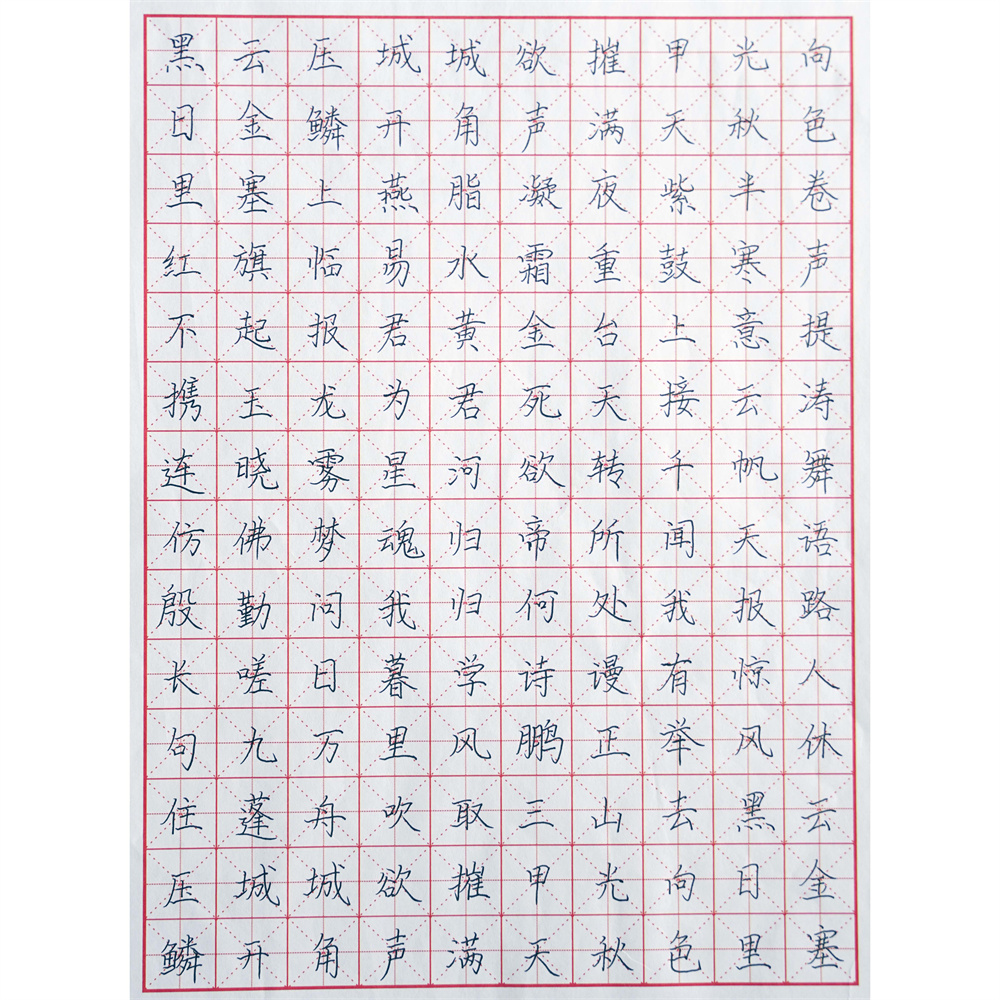 黑云压城城欲摧甲光向
日金鳞开角声满天秋色
里塞上燕脂凝夜紫半卷
红旗临易水霜重鼓寒声
不起报君黄金台上意提
携玉龙为君死天接云涛
连晓雾星河欲转千帆舞
仿佛梦魂归帝所闻天语
殷勤问我归何处我报路
长嗟日暮学诗谩有惊人
句九万里风鹏正举风休
住蓬舟吹取三山去黑云
压城城欲摧甲光向日金
鳞开角声满天秋色里塞